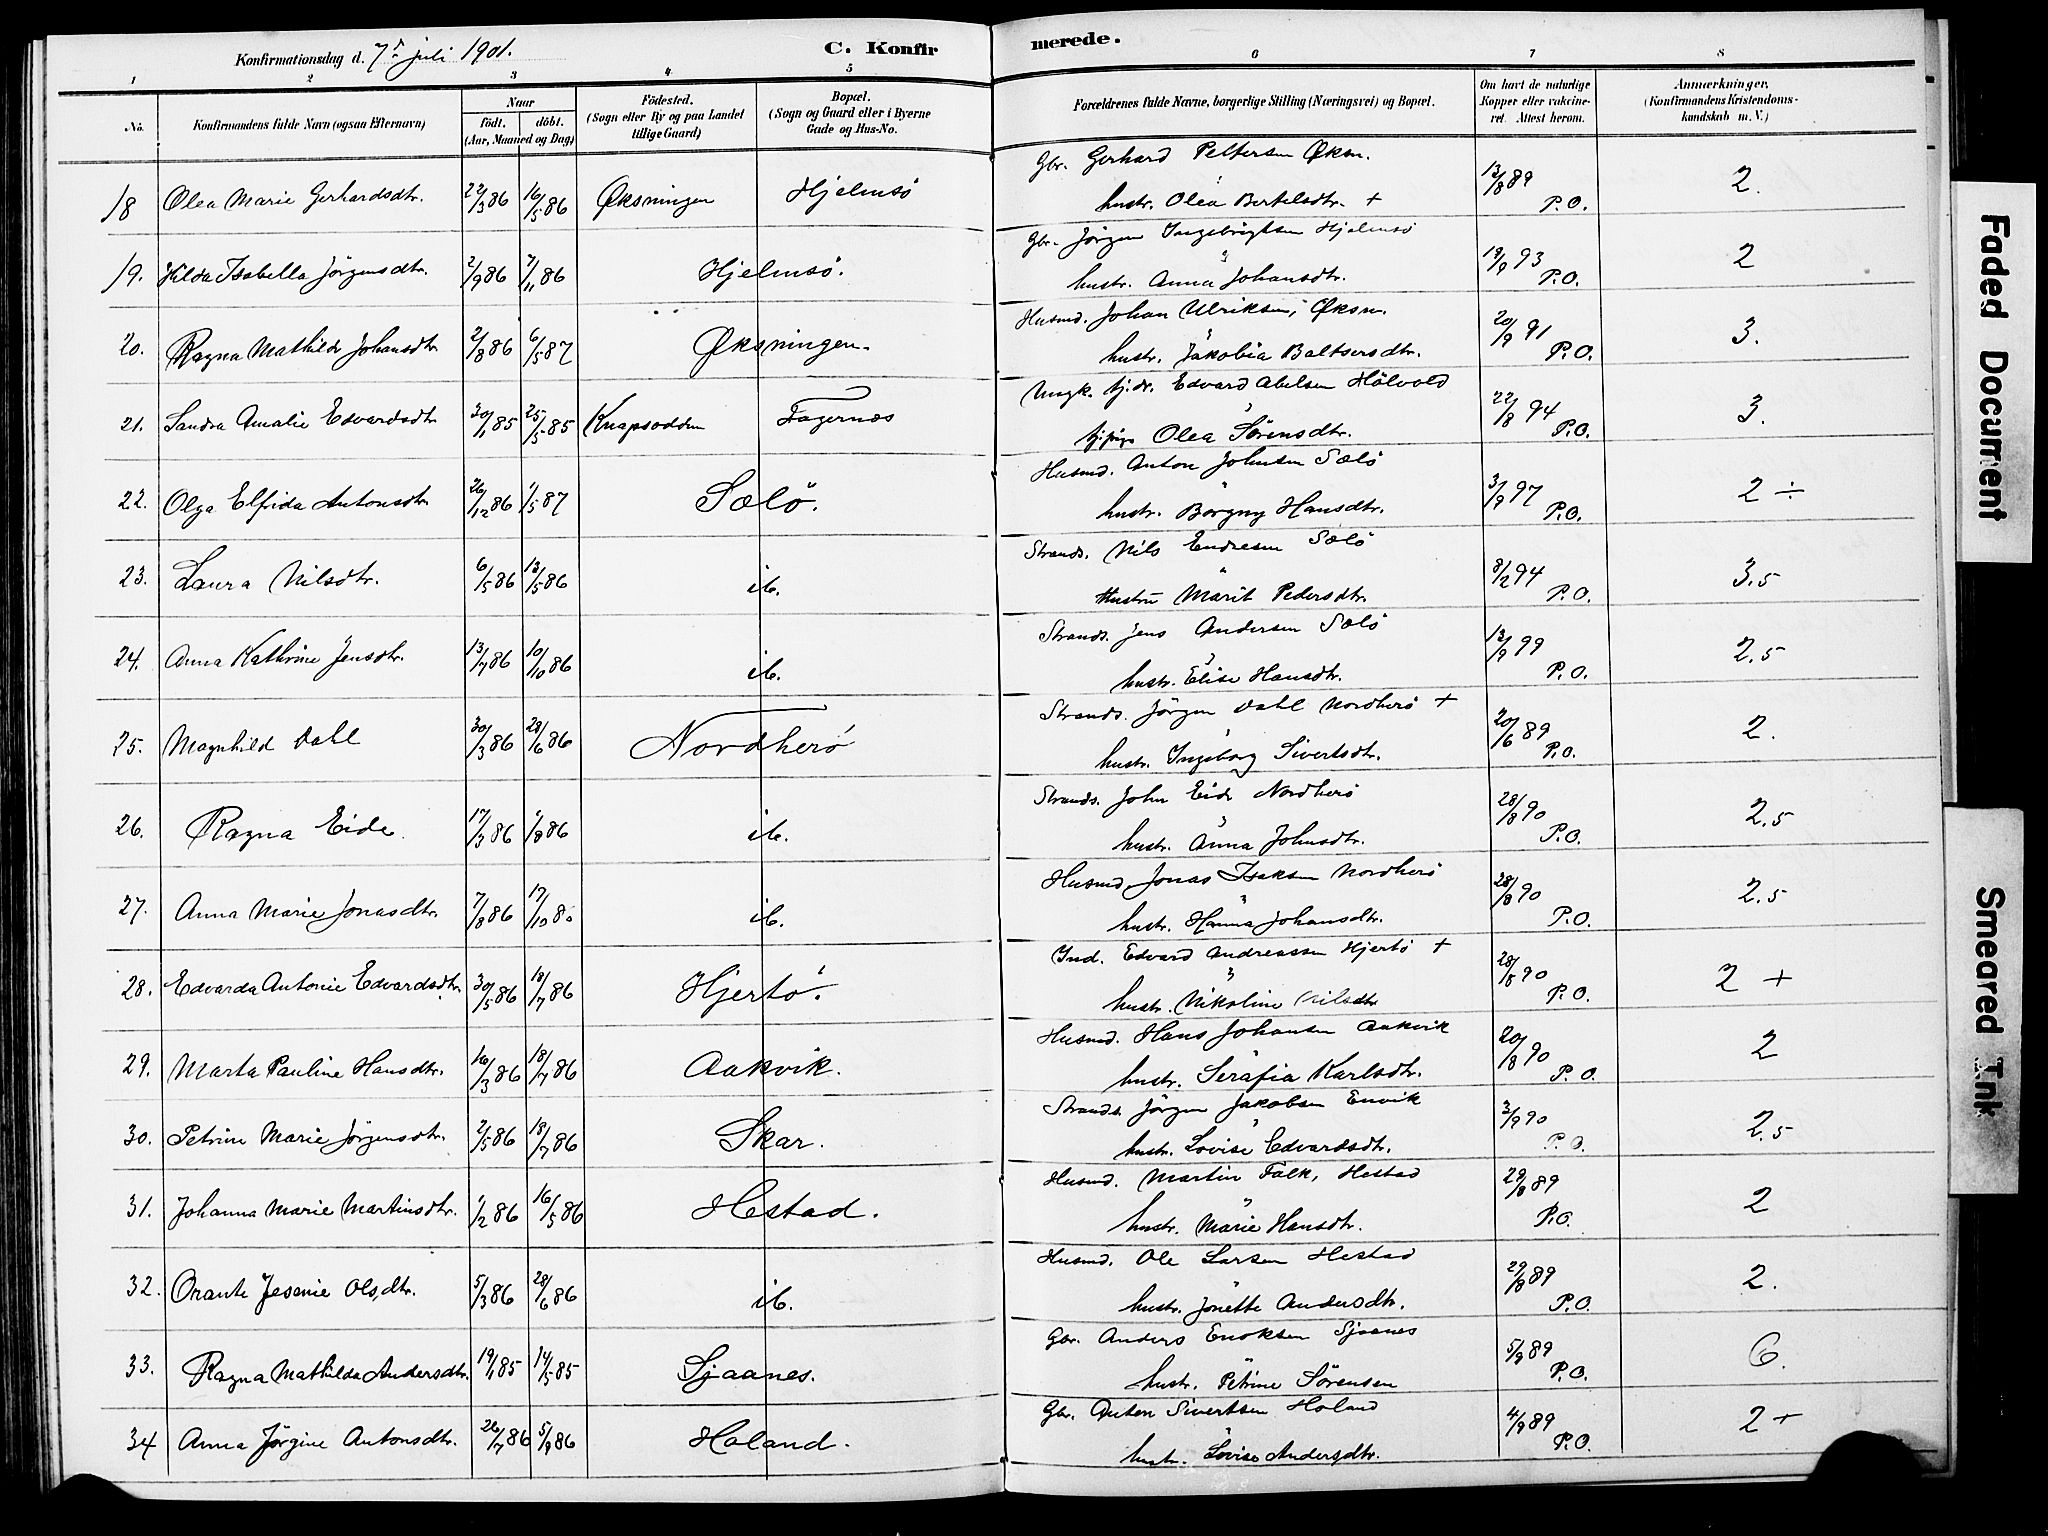 Konfirmationsdag d. 7de juli 1901.
C. Konfirmerede.
1 2 3 4 5 6 7 8
No. Konfirmandens fulde Navn (ogsaa Efternavn) Naar født. døbt. (Aar, Maaned og Dag) Fødested. (Sogn eller By og paa Landet tillige Gaard) Bopæl. (Sogn og Gaard eller i Byerne Gade og Hus-No. Forældrenes fulde Navne, borgerlige Stilling (Næringsvei) og Bopæl. Om havt de naturlige Kopper eller vaccineret. Attest herom. Anmærkninger. (Konfirmandens Kristendomskundskab m. V.)
18 Olea Marie Gerhardsdtr. 22/3 86 16/5 86 Øksningen Hjelmsö Gbr. Gerhard Pettersen Øksn. 13/8 89 2.
hustr. Olea Bertelsdtr. + P.O.
19. Hilda Isabella Jörgensdtr. 2/9 86 7/11 86 Hjelmsö. Gbr. Jörgen Ingebrigtsen Hjelmsö 19/9 93 2
hustr. Anna Johansdtr. P.O.
20. Ragna Mathilde Johansdtr 2/8 86 6/5 87 Øksningen. Husmd. Johan Ulriksen, Øksn. 20/9 91 3.
hustr. Jakobia Baltsersdtr. P.O.
21. Sandra Amalie Edvardsdtr 30/1 85 25/5 85 Knapsodden Fagernæs Ungk. tj.dr. Edvard Abelsen Hölvold 22/8 94 3.
tjpige Olea Sörensdtr. P.O.
22. Olga Elfrida Antonsdtr. 26/12 86 1/5 87 Sælö. Husmd. Anton Johnsen Sælö 3/9 97 2 ÷
hustr. Borgny Hansdtr. P.O.
23. Laura Nilsdtr. 6/5 86 13/5 86 ib. Strands. Nils Endresen Sælö 8/2 94 3.5
Hustru Marit Pedersdtr. P.O.
24. Anna Kathrine Jensdtr. 13/7 86 10/10 86 ib. Strands. Jens Andersen Sælö 13/9 99 2.5
hustr. Elise Hansdtr. P.O.
25. Magnhild Dahl 30/3 86 29/6 86 Nordherö Strands. Jörgen Dahl Nordherö + 20/6 89 2.
hustr. Ingeborg Sivertsdtr. P.O.
26. Ragna Eide. 17/3 86 1/8 86 ib. Strands. John Eide Nordherö 28/8 90 2.5
hustr. Anna Johnsdtr. P.O.
27. Anna Marie Jonasdtr. 7/8 86 17/10 86 ib. Husmd Jonas Isaksen Nordherö 28/8 90 2.5
hustr. Hanna Johansdtr. P.O.
28. Edvarda Antonie Edvardsdtr. 30/5 86 18/7 86 Hjertö. Ind. Edvard Andreassen Hjertö + 28/8 90 2 +
hustr. Nikoline Nilsdtr P.O.
29. Marta Pauline Hansdtr. 16/3 86 18/7 86 Aakvik. Husmd. Hans Johansen Aakvik 20/8 90 2
hustr. Serafia Karlsdtr. P.O.
30. Petrine Marie Jörgensdtr. 2/5 86 18/7 86 Skar. Strands. Jörgen Jakobsen Envik 3/9 90 2.5
hustr. Lovise Edvardsdtr. P.O.
31. Johanna Marie Martinsdtr. 1/2 86 16/5 86 Hestad. Husmd. Martin Falk, Hestad 29/8 89 2
hustr. Marie Hansdtr. P.O.
32. Orante Jesenie Olsdtr. 5/3 86 28/6 86 ib. Husmd. Ole Larsen Hestad 29/8 89 2.
hustr. Jonette Andersdtr. P.O.
33. Ragna Mathilda Andersdtr. 19/1 85 14/5 85 Sjaanes. Gbr. Anders Enoksen Sjaanes 5/9 89 6.
hustr. Petrine Sörensen P.O.
34 Anna Jörgine Antonsdtr. 26/7 86 5/9 86 Holand. Gbr. Anton Sivertsen Holand 4/9 89 2+
hustr. Lovise Andersdtr. P.O.
Faded Document
Smeared Ink